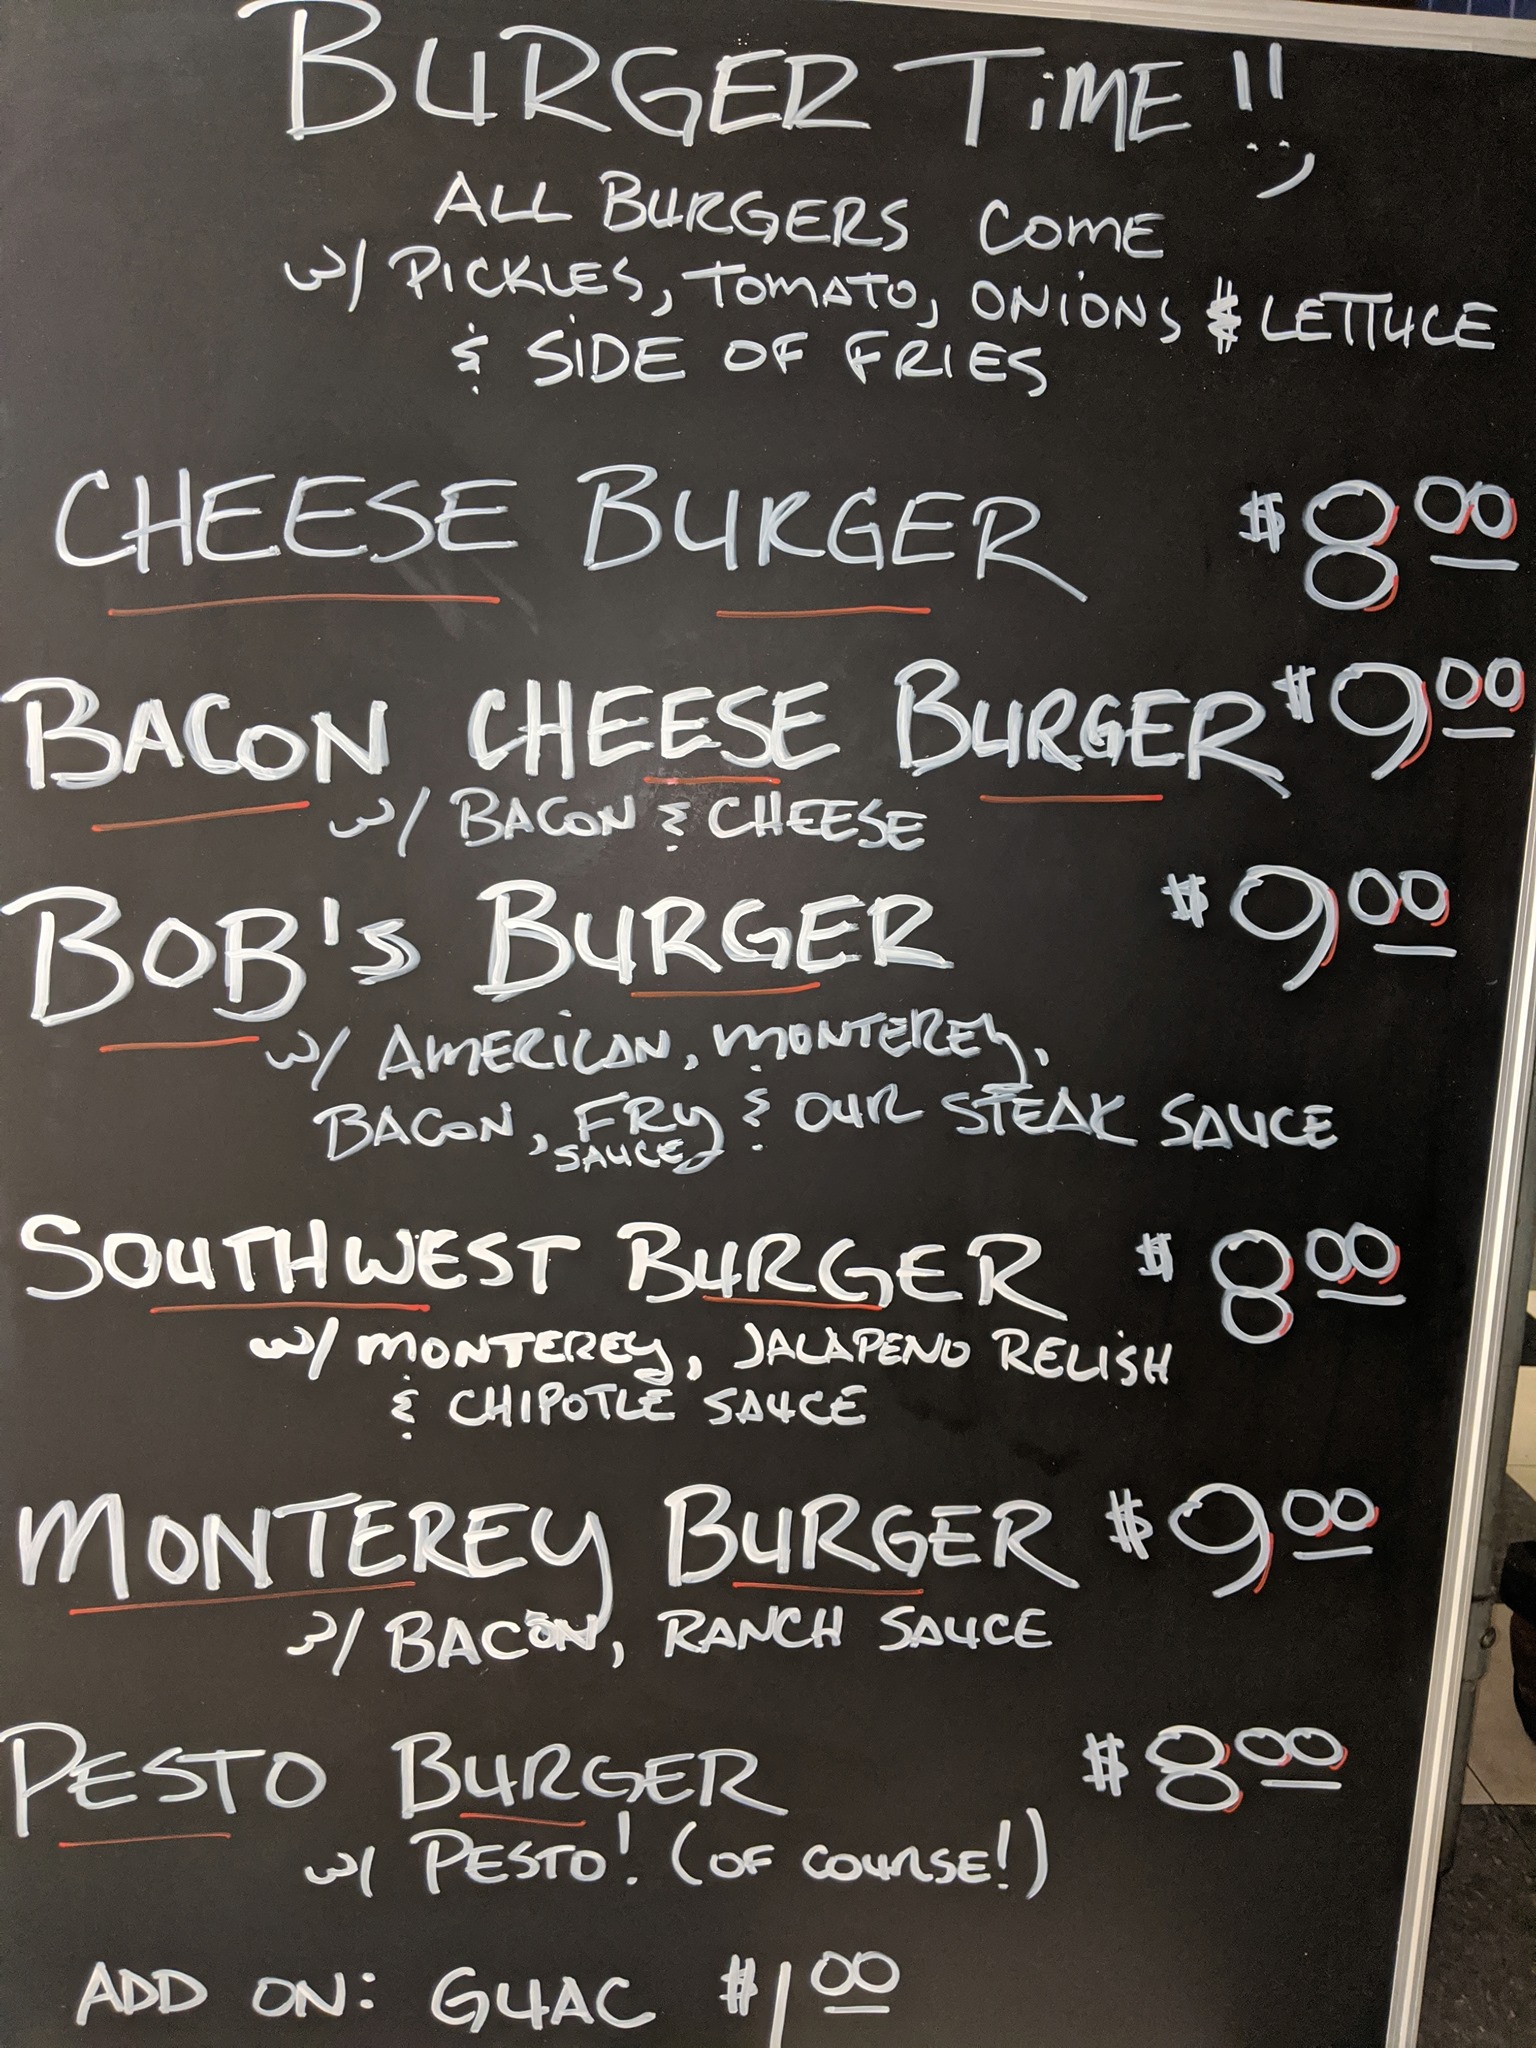 BURGER TiME!!
ALL BURGERS COME
w/ PICKLES, TOMATO, ONIONS & LETTUCE
& SIDE OF FRIES
CHEESE BURGER $8.00
BACON CHEESE BURGER $9.00
w/ BACON & CHEESE
BOB's BURGER $9.00
w/ AMERICAN, MONTEREY,
BACON, FRY SAUCE, & OUR STEAK SAUCE
SOUTHWEST BURGER $8.00
w/ MONTEREY, JALAPENO RELISH
& CHIPOTLE SAUCE
MONTEREY BURGER $9.00
w/ BACON, RANCH SAUCE
PESTO BURGER $8.00
w/ PESTO! (OF COURSE!)
ADD ON: GUAC $1.00